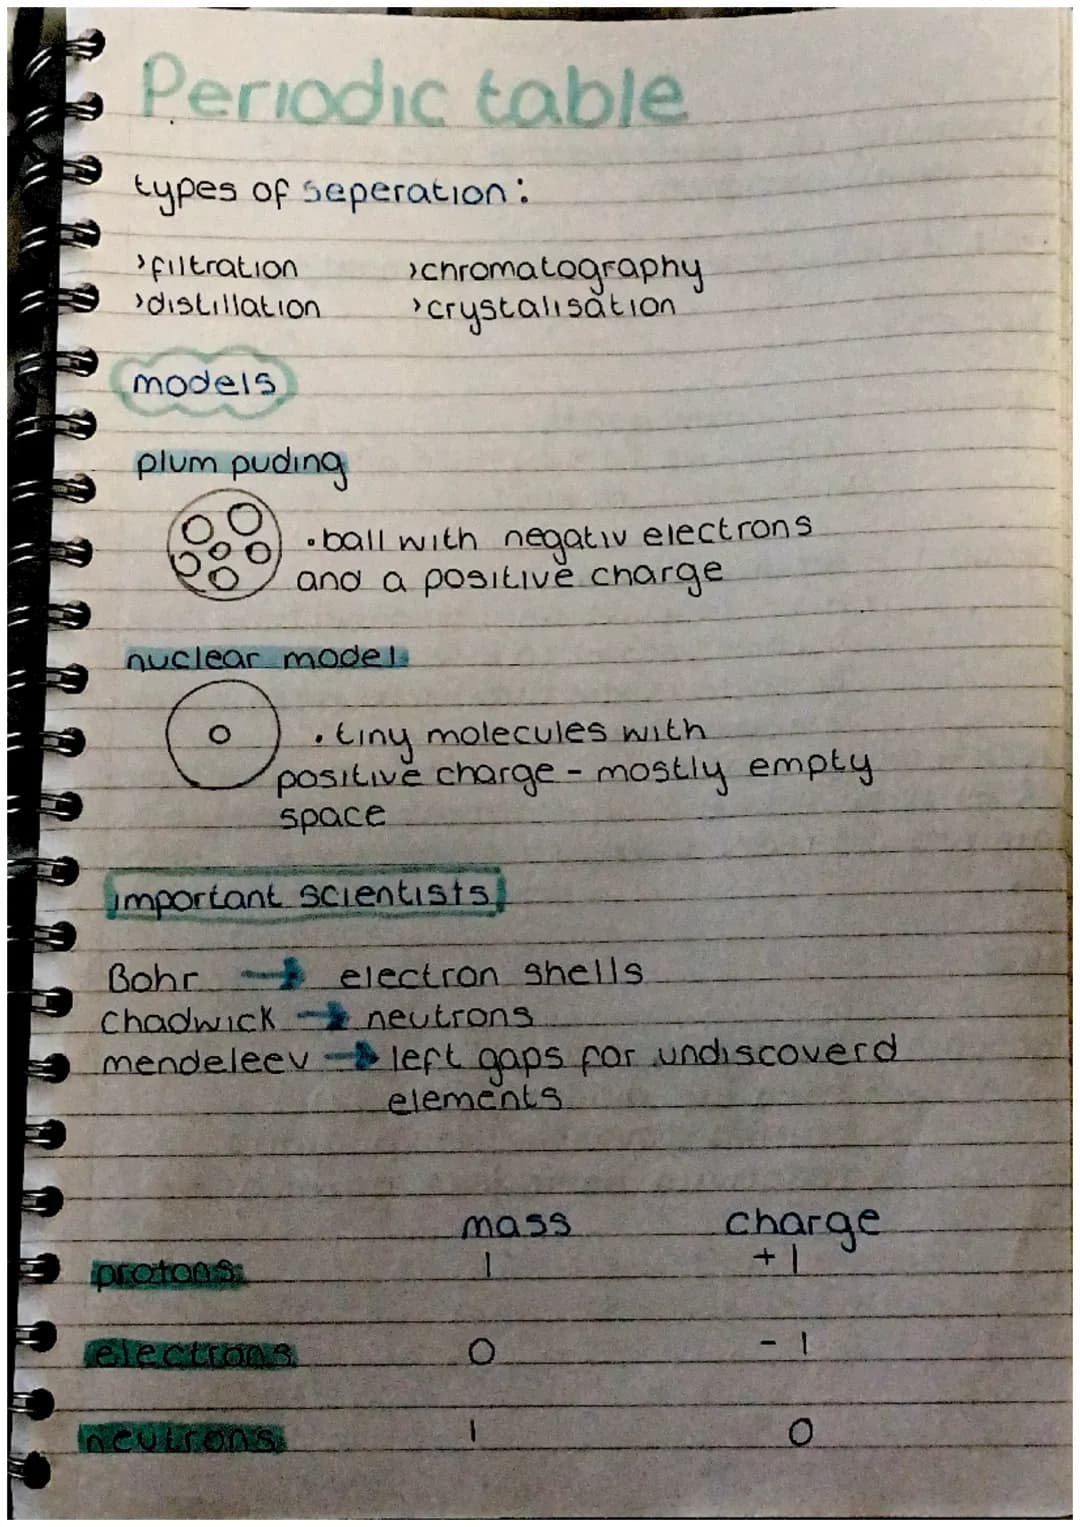 Periodic table
types of seperation:
›filtration ›chromatography
›distillation ›crystalisation
models
plum puding
•ball with negativ electrons
and a positive charge
nuclear model
•tiny molecules with
positive charge - mostly empty
space
important scientists
Bohr → electron shells
Chadwick → neutrons
mendeleev → left gaps for undiscoverd
elements
mass charge
protons 1 +1
electrons 0 -1
neutrons 1 0